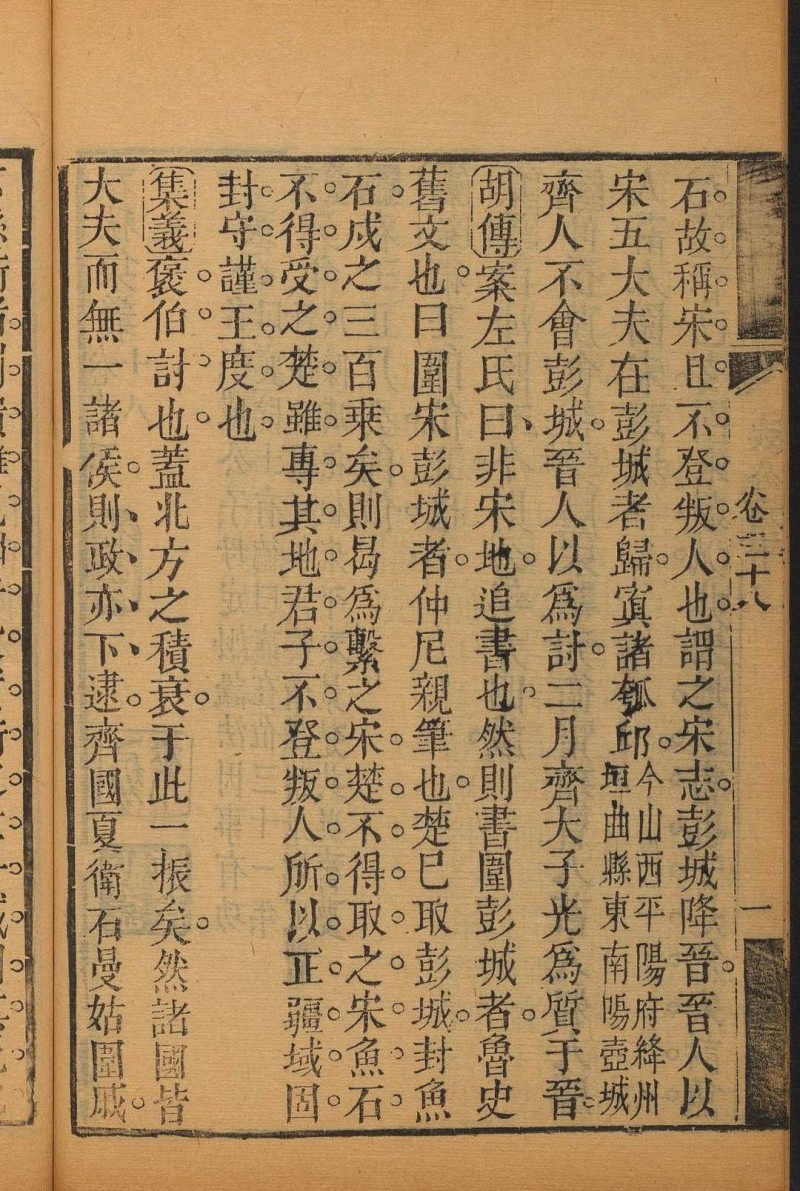 卷三十八
一
石故稱宋且不登叛人也謂之宋志彭城降晉晉人以
宋五大夫在彭城者歸寘諸瓠邱今山西平陽府絳州垣曲縣東南陽壺城
齊人不會彭城晉人以為討二月齊大子光為質于晉
胡傳案左氏曰非宋地追書也然則書圍彭城者魯史
舊文也曰圍宋彭城者仲尼親筆也楚已取彭城封魚
石戍之三百乘矣則曷為繫之宋楚不得取之宋魚石
不得受之楚雖專其地君子不登叛人所以正疆域固
封守謹王度也
集義褒伯討也蓋北方之積衰于此一振矣然諸國皆
大夫而無一諸侯則政亦下逮齊國夏衛石曼姑圍戚